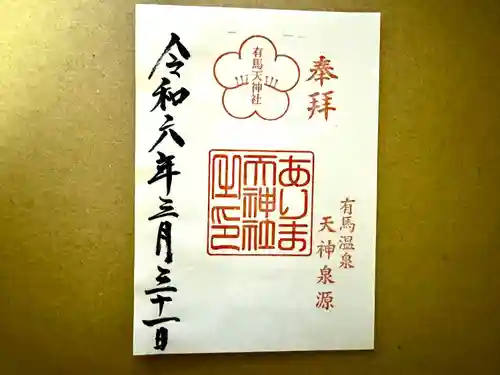 奉拝
有馬温泉
天神泉源
有馬天神社
ありま
天神社
之印
令和六年三月三十一日